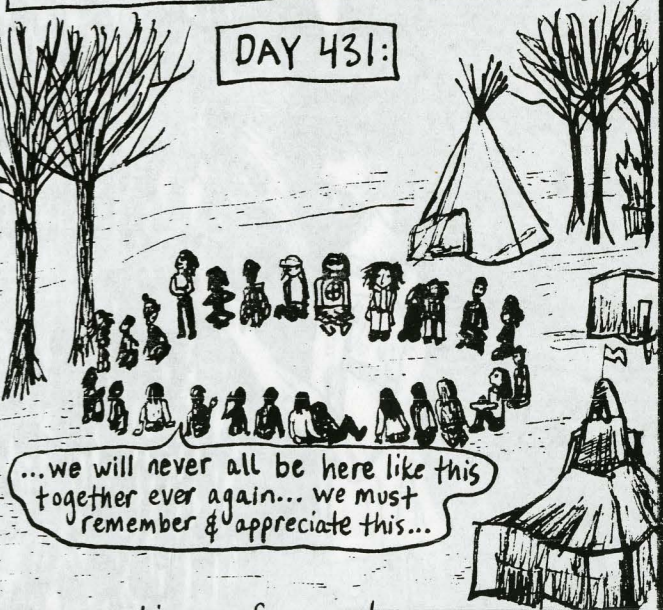 DAY 431:
...we will never all be here like this
together ever again... we must
remember & appreciate this...